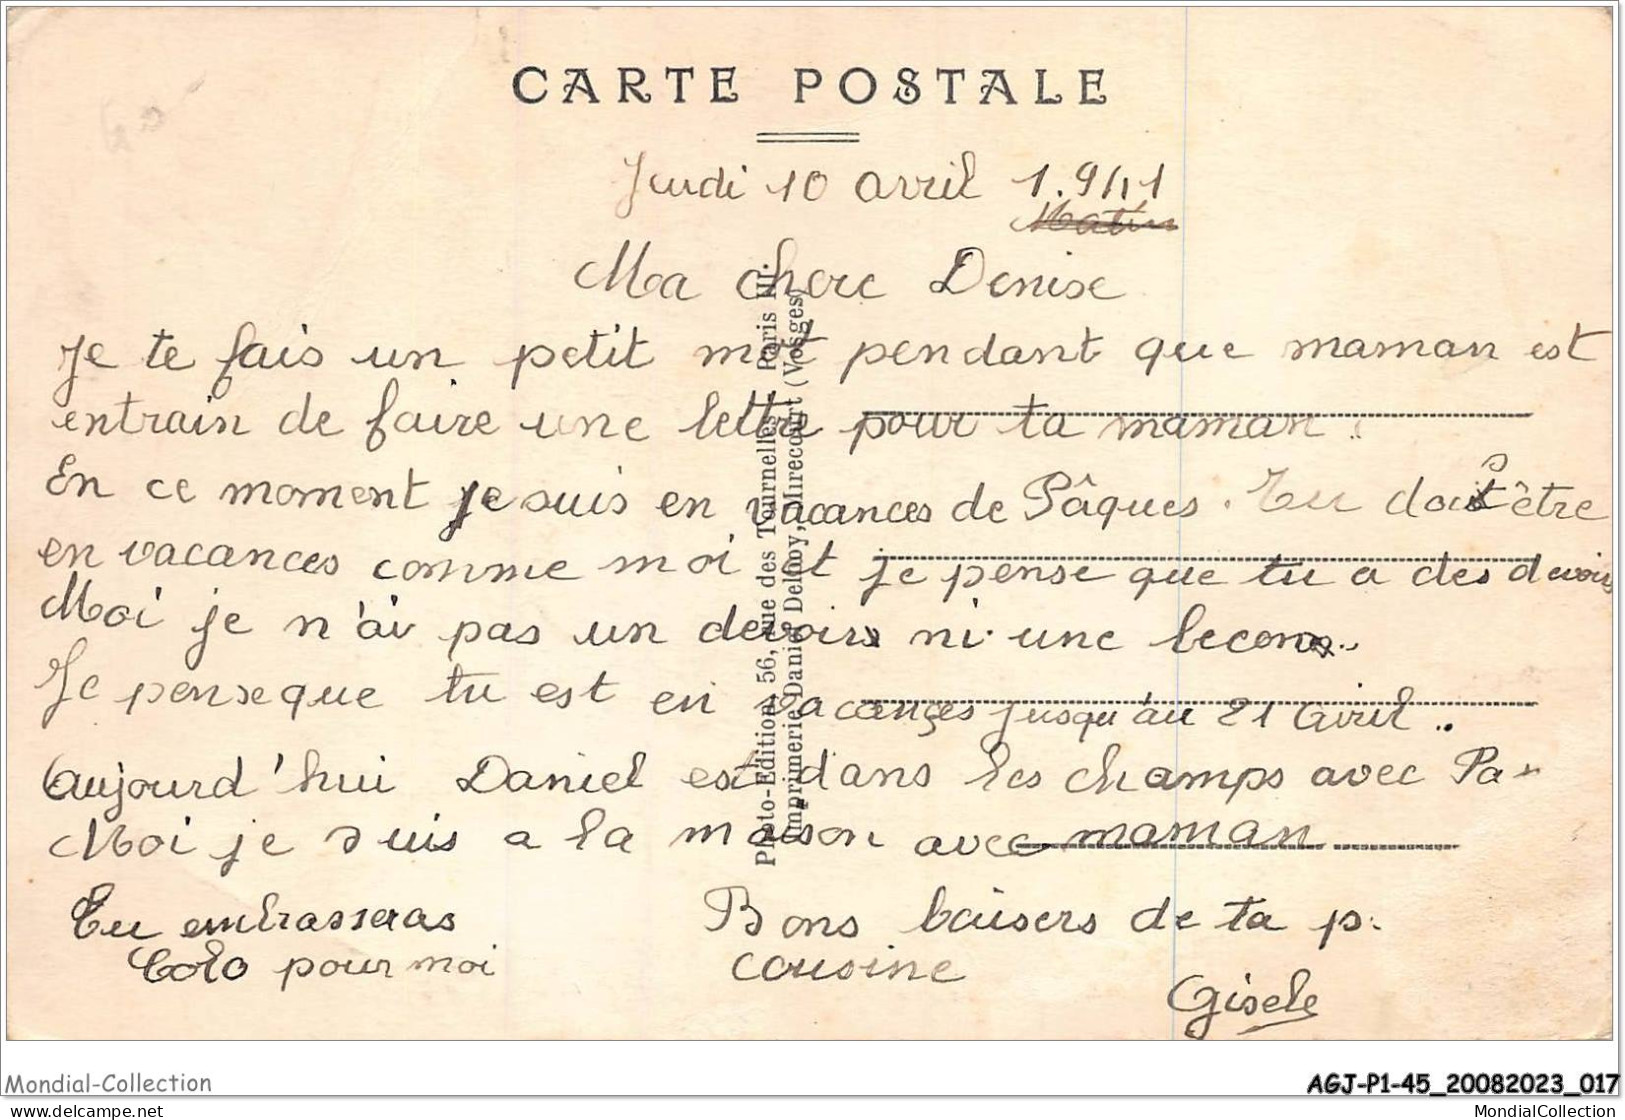 CARTE POSTALE
Jeudi 10 avril 1.941
Matin
Ma chere Denise
Je te fais un petit mot pendant que maman est
entrain de faire une lettre pour ta maman..
En ce moment je suis en vacances de Pâques. Tu dois être
en vacances comme moi et je pense que tu a des devoirs
Moi je n'ai pas un devoirs ni une lecons..
Je pense que tu est en vacances jusqu'au 21 avril..
aujourd'hui Daniel est dans les champs avec Pa-
Moi je suis a la maison avec maman
Tu embrasseras
Toto pour moi
Bons baisers de ta p.
cousine
Gisele
Photo-Edition, 56, rue des Tournelles Paris III.
Imprimerie Daniel Delroy, Mirecourt (Vosges)
Mondial-Collection
AGJ-P1-45_20082023_017
delcampe.net
MondialCollection